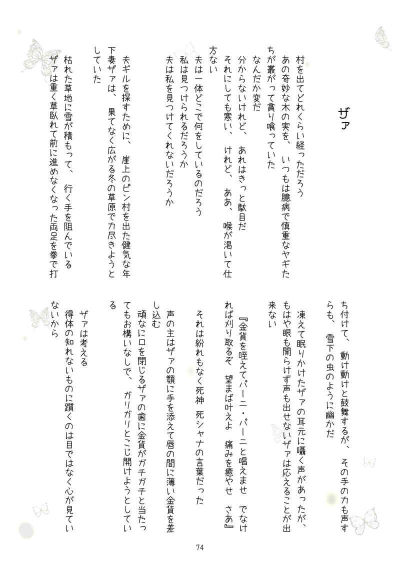 ザァ
村を出てどれくらい経っただろう
あの奇妙な木の実を、いつもは臆病で慎重なヤギた
ちが叢がって貪り喰っていた
なんだか変だ
分からないけれど、あれはきっと駄目だ
それにしても寒い、けれど、ああ、喉が渇いて仕
方ない
夫は一体どこで何をしているのだろう
私は見つけられるだろうか
夫は私を見つけてくれないだろうか
夫ギルを探すために、崖上のピン村を出た健気な年
下妻ザァは、果てなく広がる冬の草原で力尽きようと
していた
枯れた草地に雪が積もって、行く手を阻んでいる
ザァは重く草臥れて前に進めなくなった両足を拳で打
ち付けて、動け動けと鼓舞するが、その手の力も声す
らも、雪下の虫のように幽かだ
凍えて眠りかけたザァの耳元に囁く声があったが、
もはや眼も開らけず声も出せないザァは応えることが出
来ない
『金貨を咥えてパーニ・パーニと唱えませ でなけ
れば刈り取るぞ 望まば叶えよ 痛みを癒やせ さあ』
それは紛れもなく死神 死シャナの言葉だった
声の主はザァの顎に手を添えて唇の間に薄い金貨を差
し込む
頑なに口を閉じるザァの歯に金貨がガチガチと当たっ
てもお構いなしで、ガリガリとこじ開けようとしてい
る
ザァは考える
得体の知れないものに躓くのは目ではなく心が見てい
ないから
74